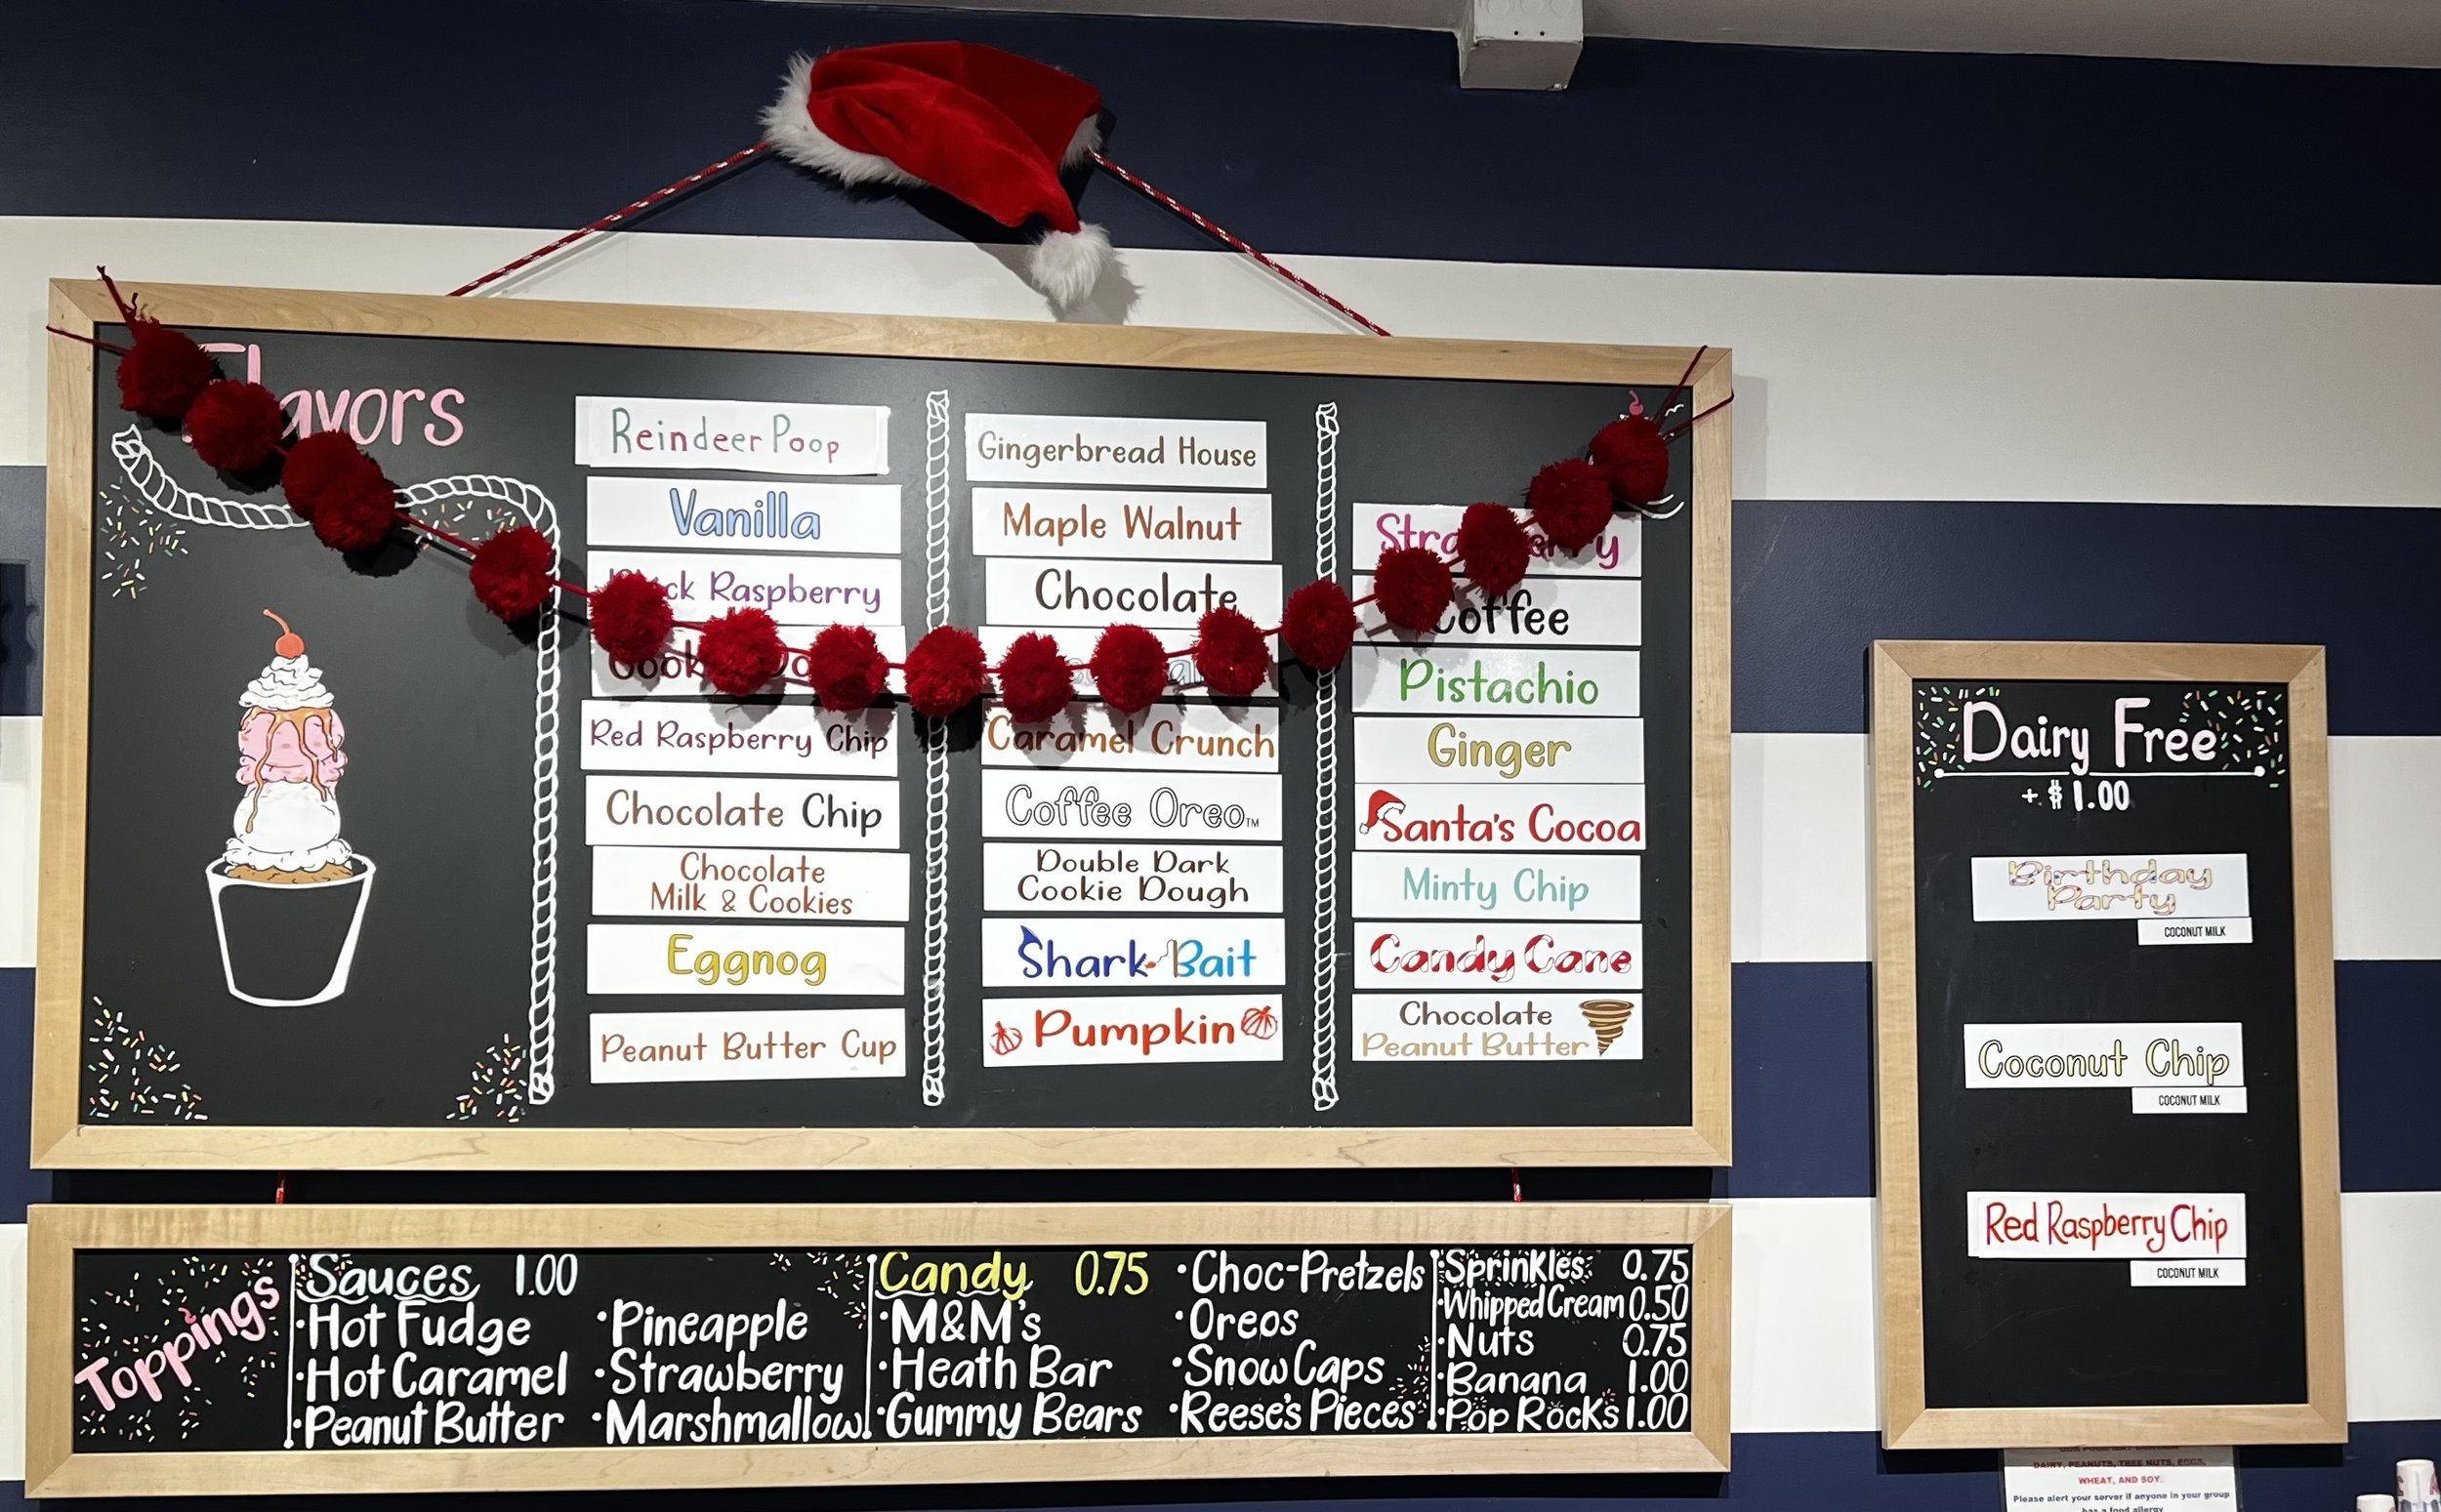 Flavors
Reindeer Poop
Vanilla
Black Raspberry
Red Raspberry Chip
Chocolate Chip
Chocolate
Milk & Cookies
Eggnog
Peanut Butter Cup
Gingerbread House
Maple Walnut
Chocolate
Caramel Crunch
Coffee Oreo™
Double Dark
Cookie Dough
Shark Bait
Pumpkin
Strawberry
Coffee
Pistachio
Ginger
Santa's Cocoa
Minty Chip
Candy Cane
Chocolate
Peanut Butter
Dairy Free
+ $1.00
Birthday
Party
COCONUT MILK
Coconut Chip
COCONUT MILK
Red Raspberry Chip
COCONUT MILK
Toppings
Sauces 1.00
•Hot Fudge
•Hot Caramel
•Peanut Butter
•Pineapple
•Strawberry
•Marshmallow
Candy 0.75
•M&M's
•Heath Bar
•Gummy Bears
•Choc-Pretzels
•Oreos
•Snow Caps
•Reese's Pieces
•Sprinkles 0.75
•Whipped Cream 0.50
•Nuts 0.75
•Banana 1.00
•Pop Rocks 1.00
DAIRY, PEANUTS, TREE NUTS, EGGS,
WHEAT, AND SOY.
Please alert your server if anyone in your group
has a food allergy